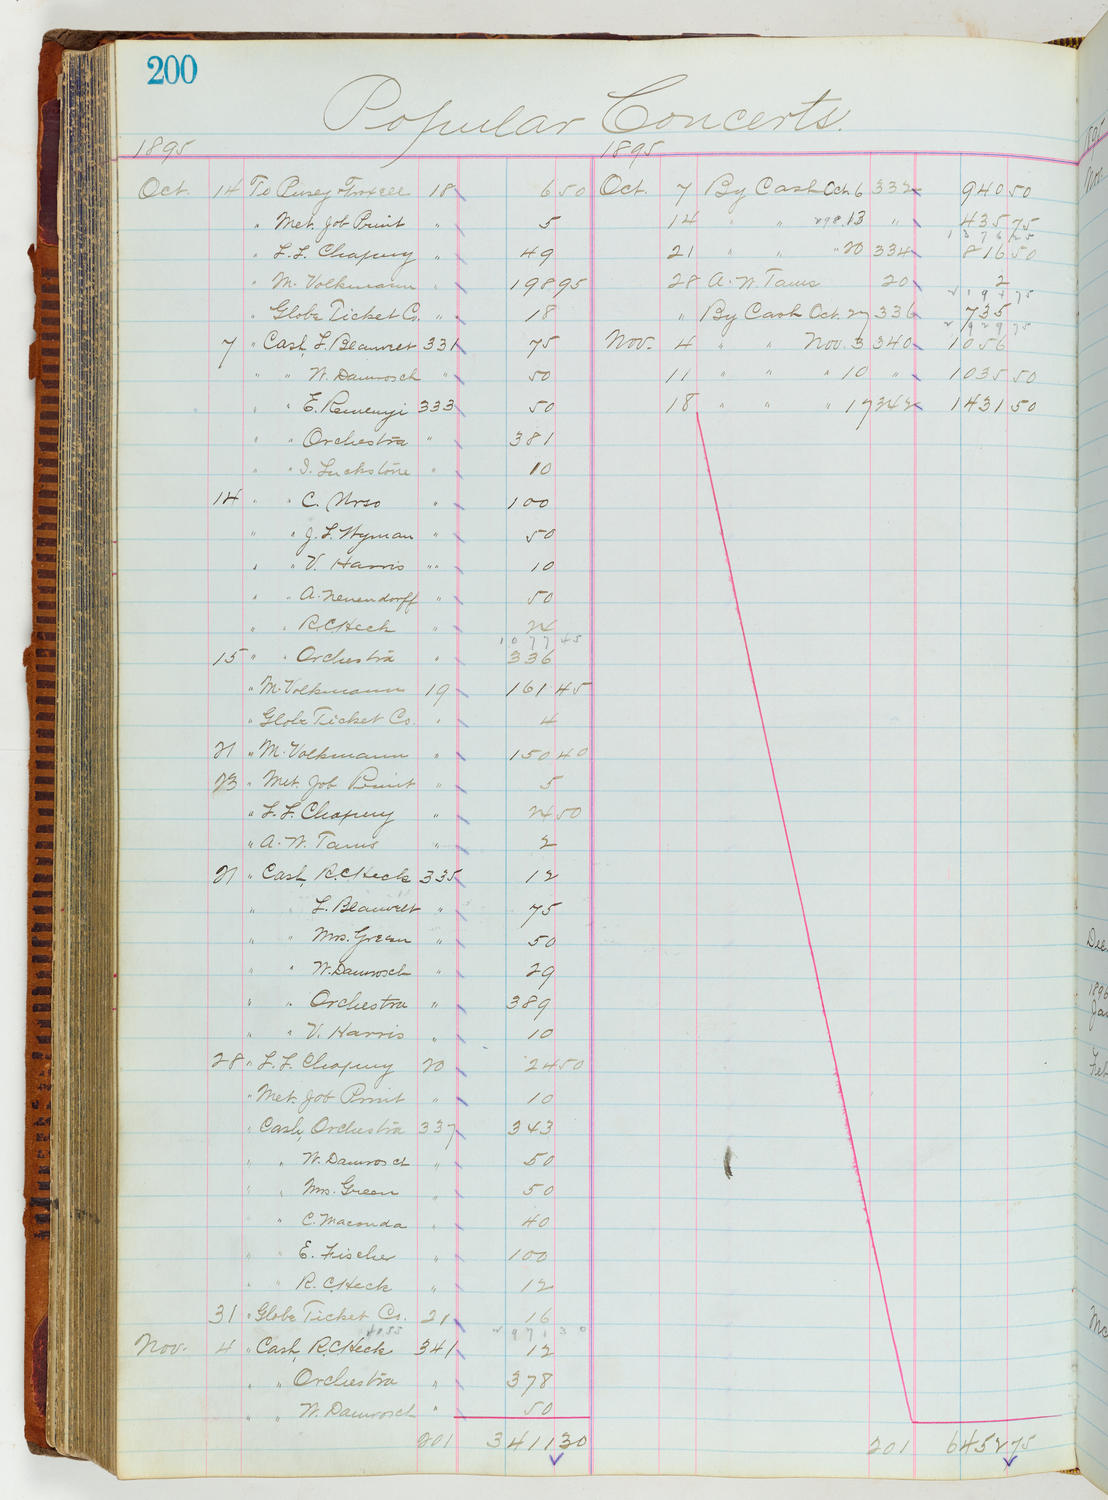 200
Popular Concerts.
1895
Oct. 14 To Pusey & Troxell 18 6 50
" Met. Job Print " 5
" L. L. Chapery " 49
" M. Volkmann " 198 95
" Globe Ticket Co. " 18
7 " Cash, L. Beauvelt 331 75
" " W. Damrosch " 50
" " E. Remenyi 333 50
" " Orchestra " 381
" " I. Luckstone " 10
14 " " C. Urso " 100
" " J. L. Wyman " 50
" " V. Harris " " 10
" " A. Neuendorff " 50
" " R. C. Heck " 24
1077 45
15 " " Orchestra " 336
" M. Volkmann 19 161 45
" Globe Ticket Co. " 4
21 " M. Volkmann " 150 40
23 " Met. Job Print " 5
" L. L. Chapery " 24 50
" A. W. Tams " 2
21 " Cash, R. C. Heck 335 12
" L. Beauvelt " 75
" " Mrs. Green " 50
" " W. Damrosch " 29
" " Orchestra " 389
" " V. Harris " 10
28 " L. L. Chapery 20 24 50
" Met. Job Print " 10
" Cash, Orchestra 337 343
" " W. Damrosch " 50
" " Mrs. Green " 50
" C. Maconda " 40
" " E. Fischer " 100
" " R. C. Heck " 12
31 " Globe Ticket Co. 21 16
2971 30
Nov. 4 " Cash, R. C. Heck 341 12
" " Orchestra " 378
" " W. Damrosch " 50
201 3411 30
1895
Oct. 7 By Cash Oct. 6 332 940 50
14 " " 13 " 435 75
1376 25
21 " " " 20 334 816 50
28 A. W. Tams 20 2
2194 75
" By Cash Oct. 27 336 735
2929 75
Nov. 4 " " Nov. 3 340 1056
11 " " " 10 " 1035 50
18 " " " 17 342 1431 50
201 6452 75
1895
Nov
Dec
1896
Jan
Feb